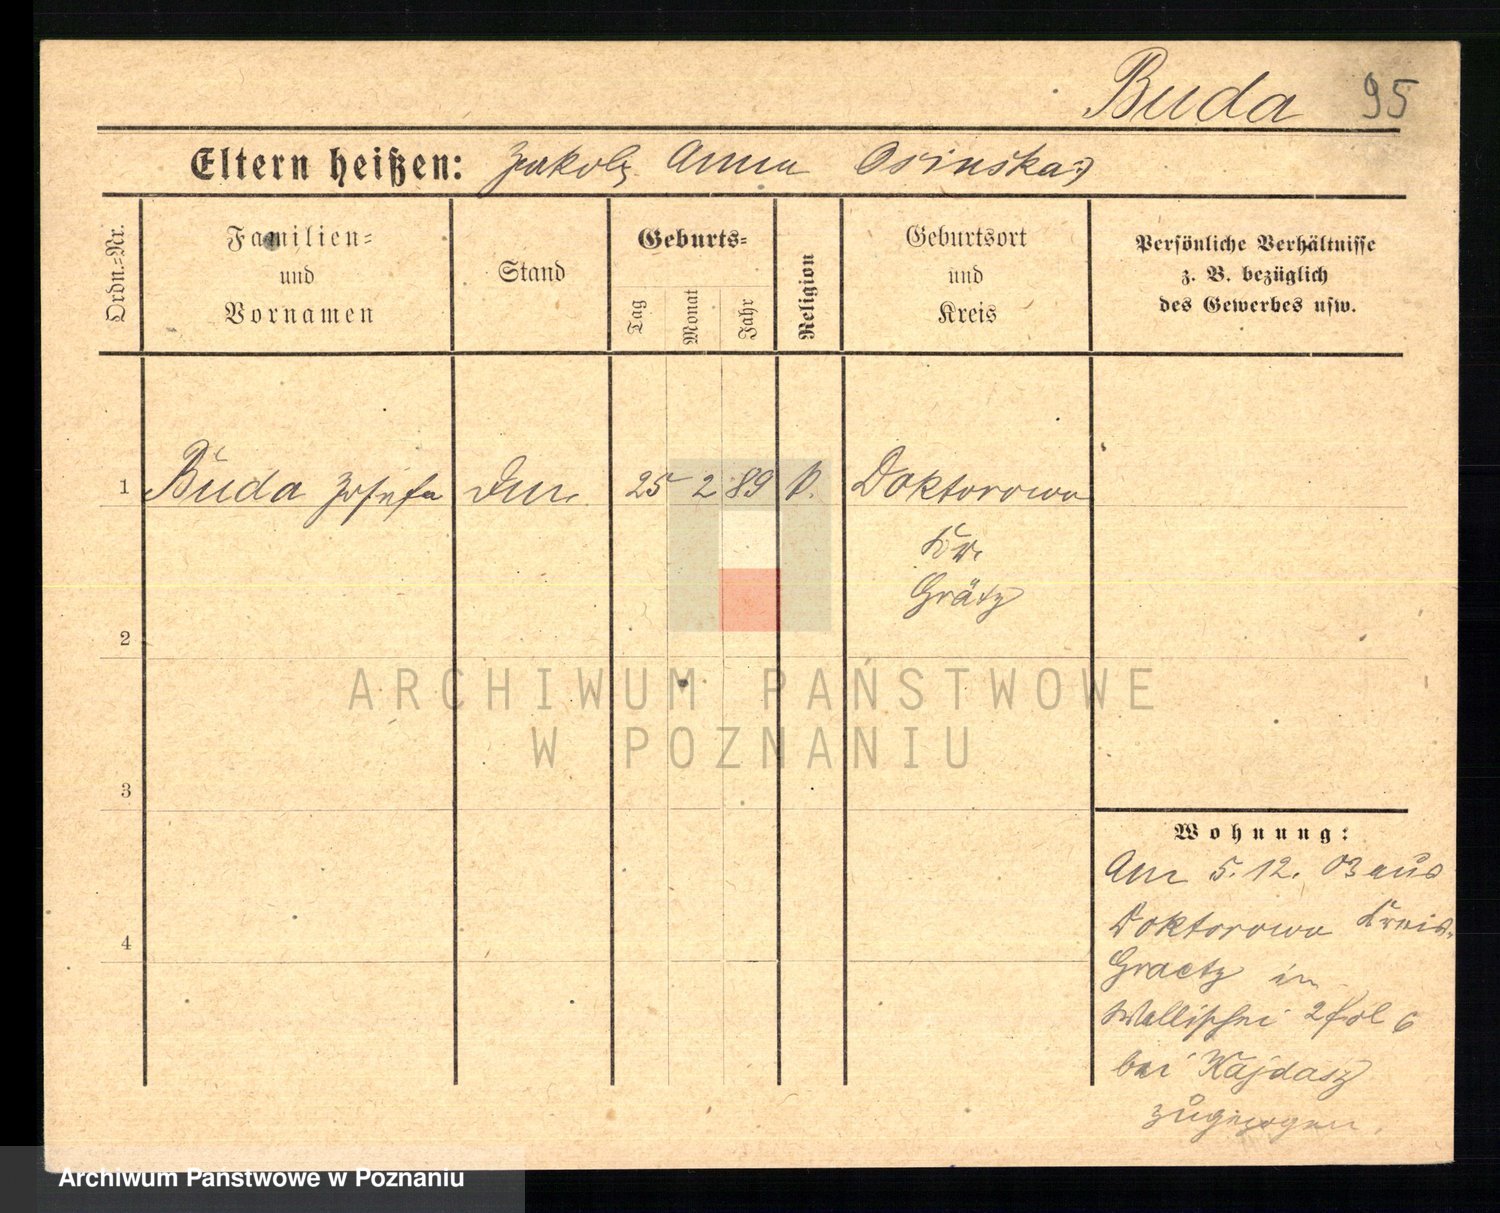 Buda 95
Eltern heißen: Jakob, Anna Osinska
Ordn.=Nr.
Familien=
und
Vornamen
Stand
Geburts=
Tag
Monat
Jahr
Religion
Geburtsort
und
Kreis
Persönliche Verhältnisse
z. B. bezüglich
des Gewerbes usw.
1 Buda Josefa 25 2 89 Doktorowo
Kr.
Grätz
2
3
4
Wohnung:
Am 5. 12. 03 aus
Doktorowo Kreis
Graetz in
Wallischei
bei Kajdasz
zugezogen.
ARCHIWUM PAŃSTWOWE
W POZNANIU
Archiwum Państwowe w Poznaniu